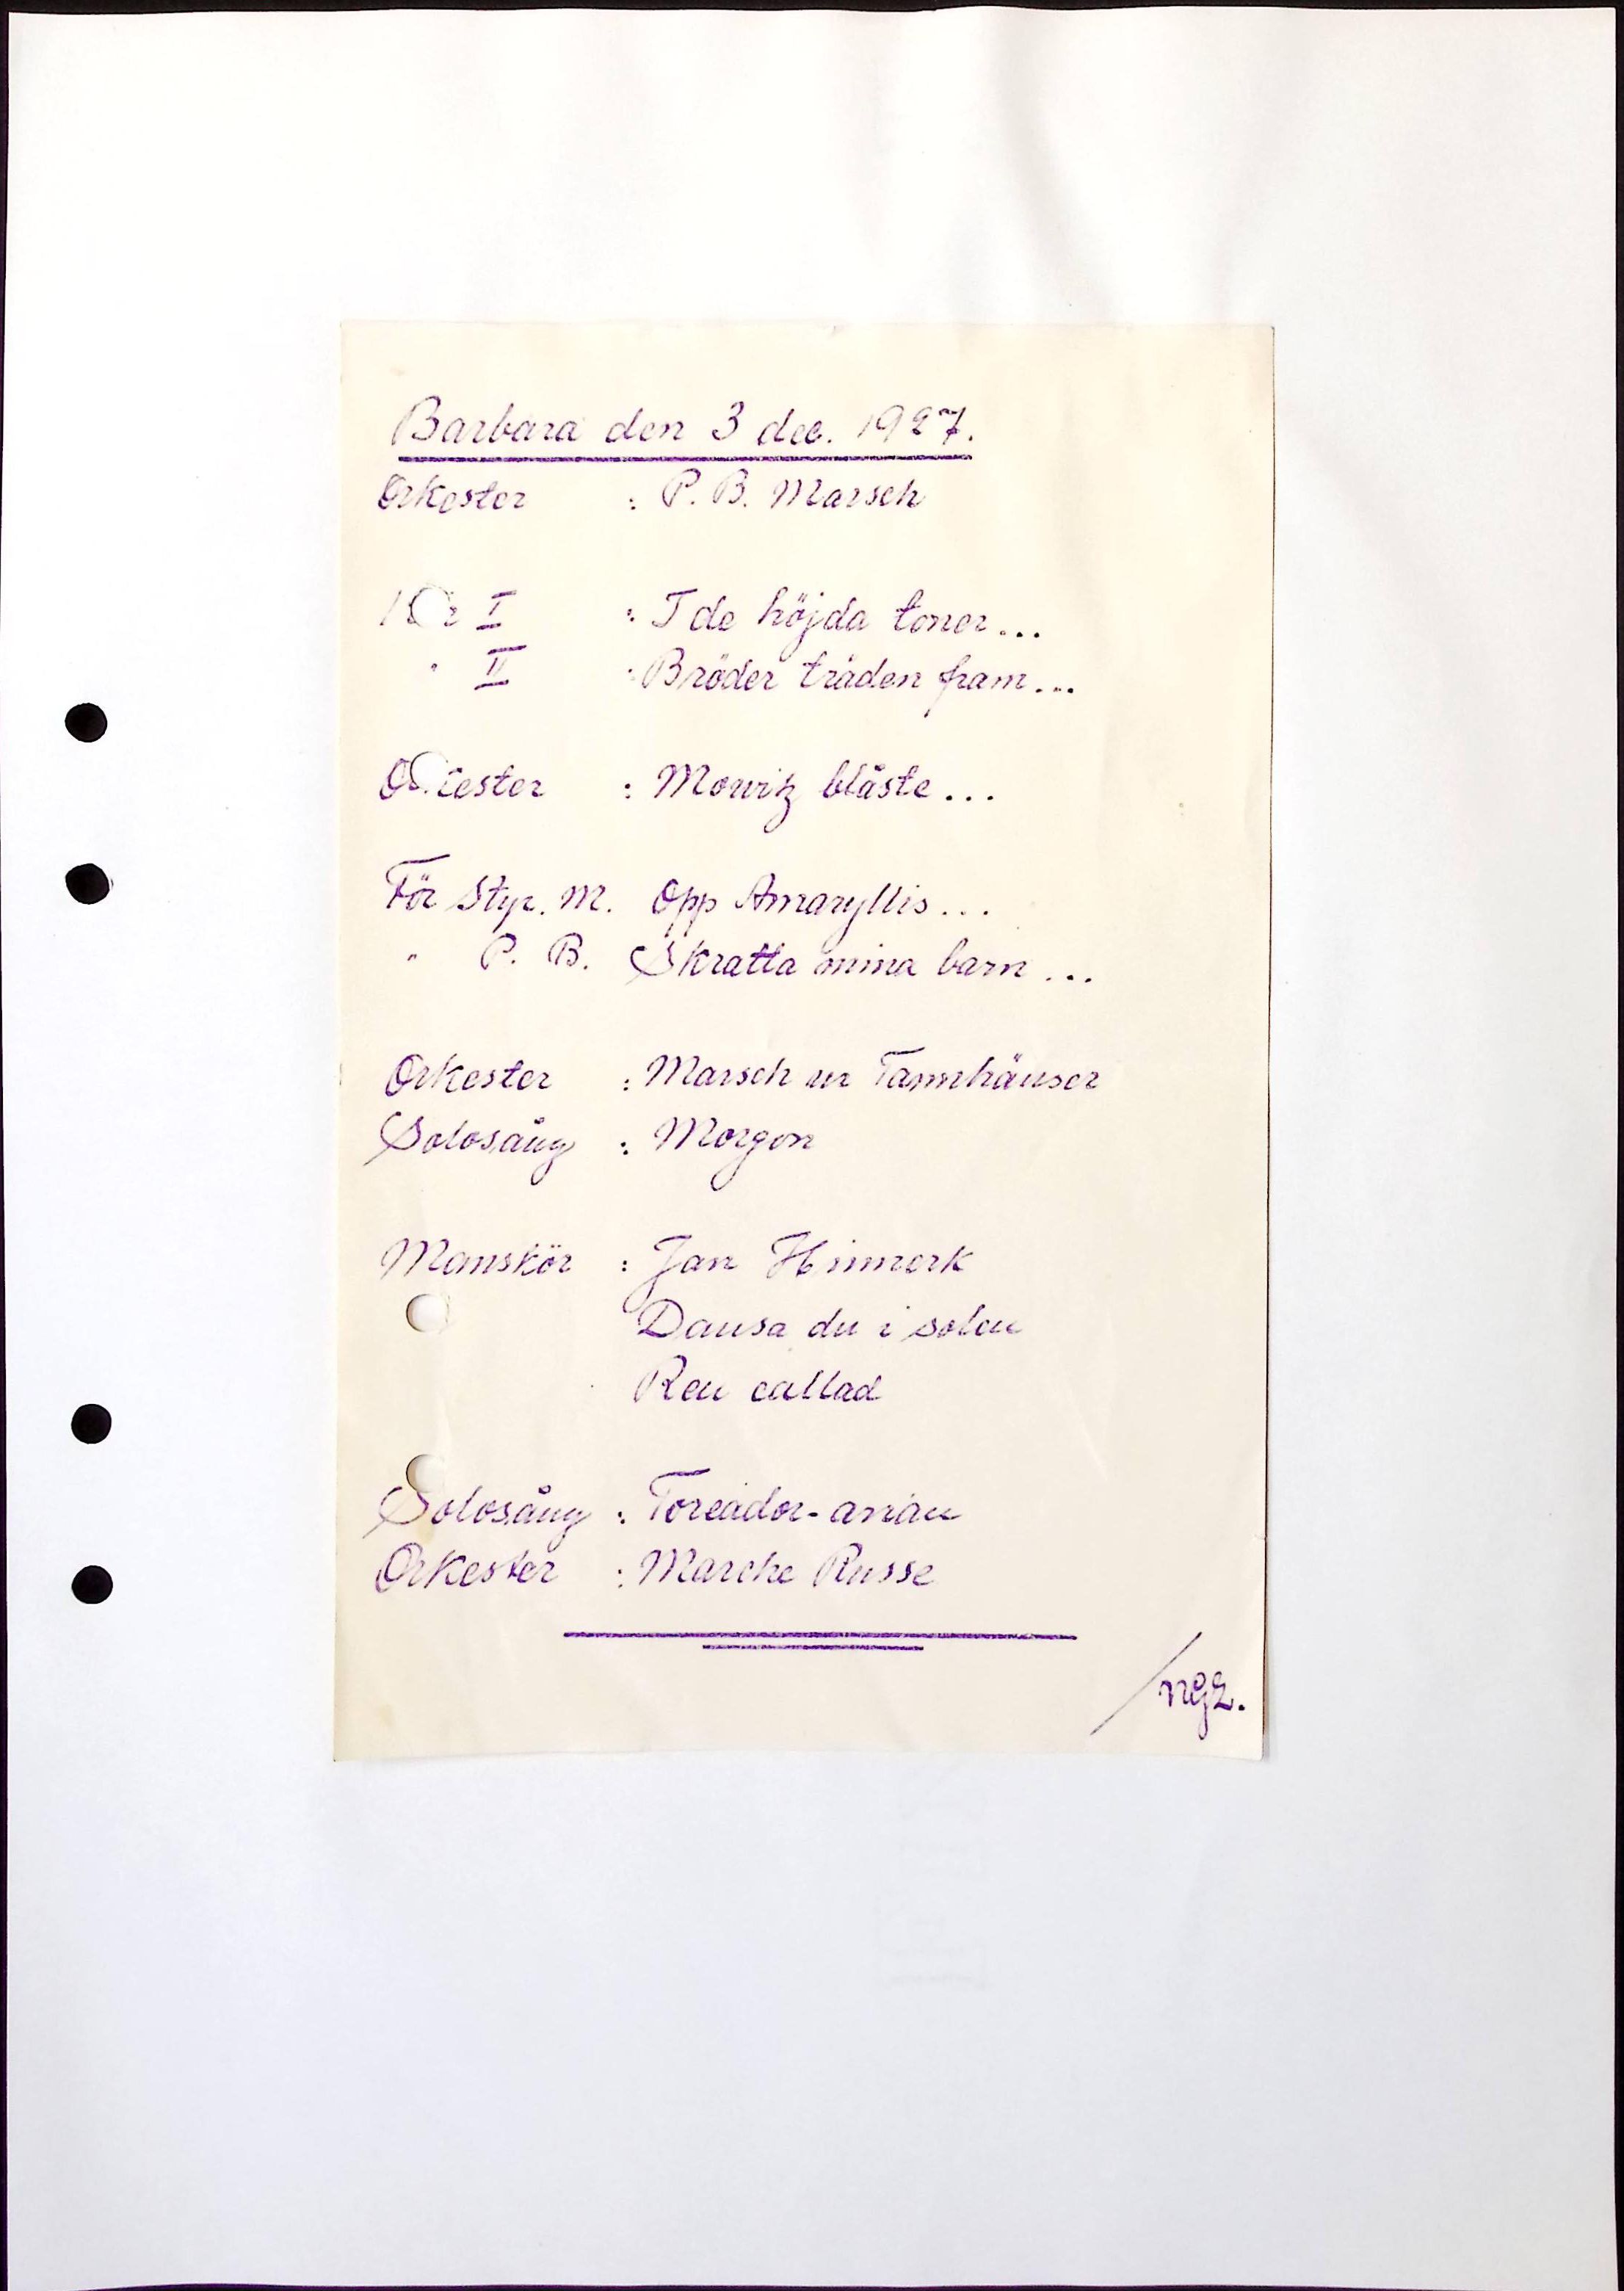 Barbara den 3 dec. 1927.
Orkester : P. B. Marsch
Kör I : I de höjda toner...
" II : Bröder träden fram...
Orkester : Mowitz blåste...
För Styr. M. Opp Amaryllis...
" P. B. Skratta mina barn...
Orkester : Marsch ur Tannhäuser
Solosång : Morgon
Manskör : Jan Hinnerk
Dansa du i solen
Ren callad
Solosång : Toreador-arian
Orkester : Marche Russe